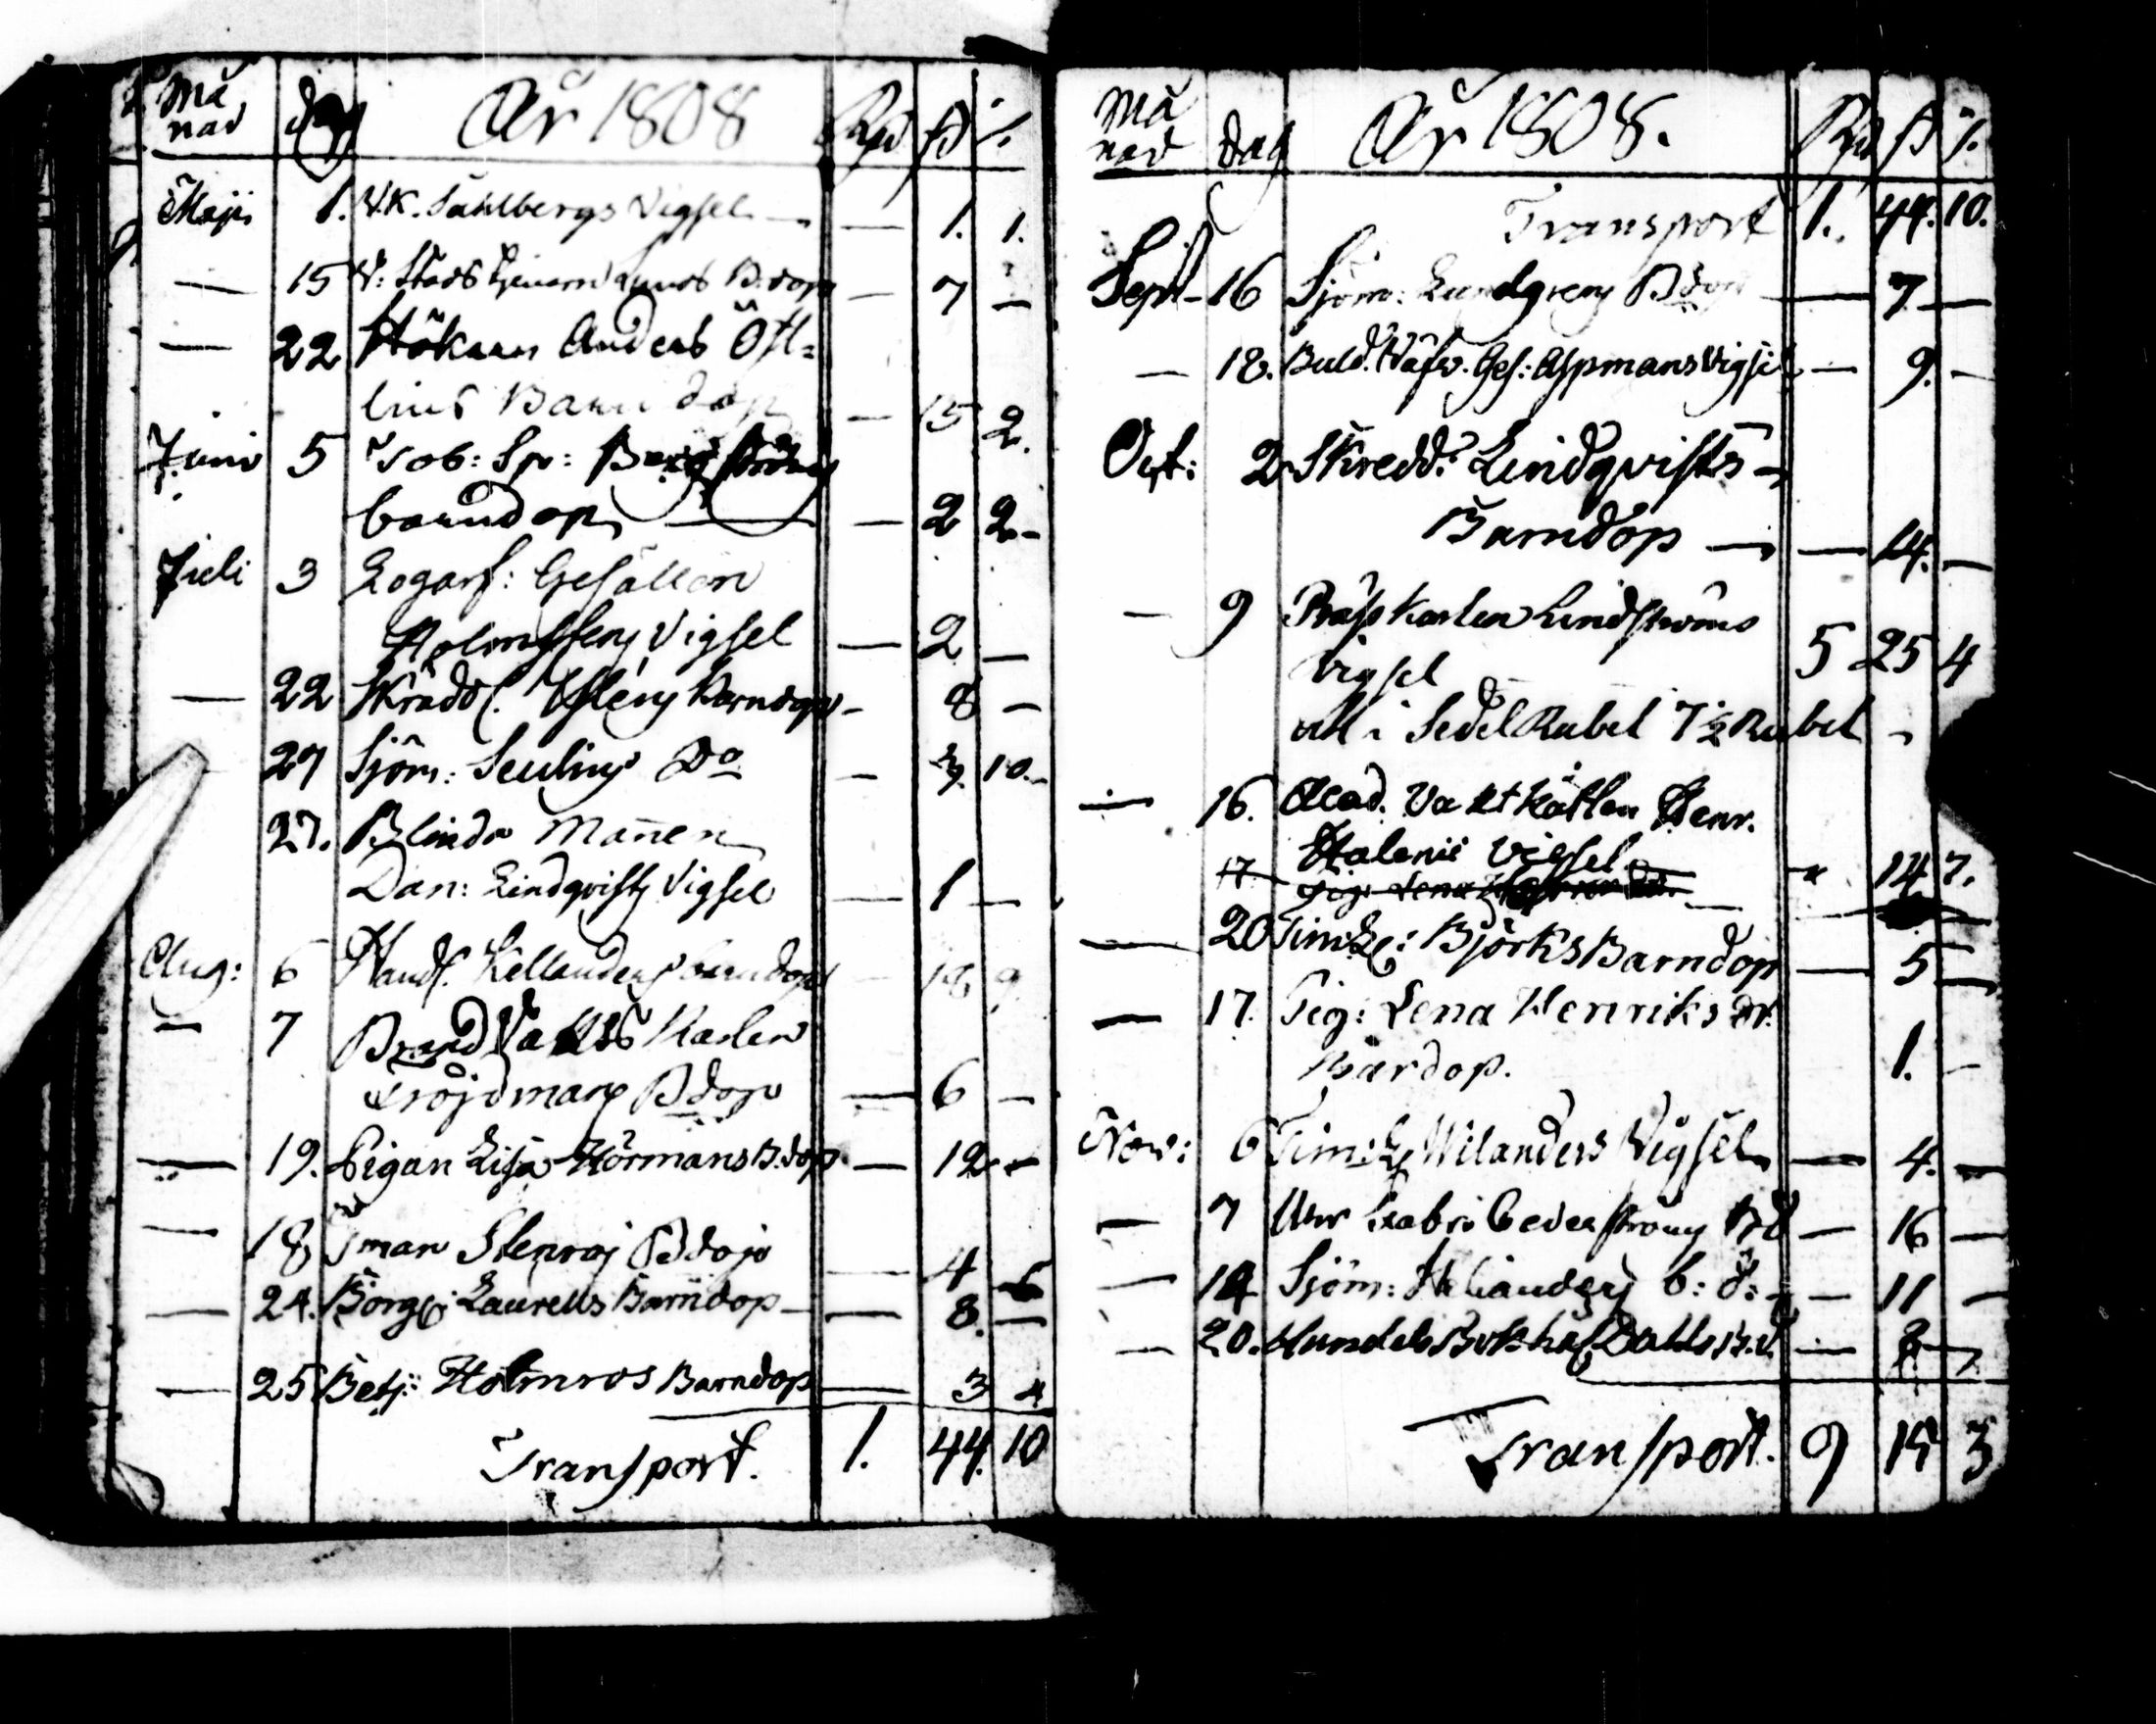 Må nad dag År 1808 Rd ß %.
Maji 1. V.K. Sahlbergs Vigsel — — 1. 1.
— 15 V: Stads tjenarn Lunds B.dop — 7 —
— 22 Hökarn Anders Öst-
lins Barndop — 15 2.
Juni 5 Tob: Sp:
barndop — — 2 2-
Juli 3 Logarf: Gesällen
Holmstens Vigsel — 2 —
— 22 Skrädd. Barndop — 8 —
27 Sjöm: Do — 10.-
27. Blinda Mannen
Dan: Lindqvists Vigsel — 1 —
Aug: 6 Handl. Kellanders barndop — 18 9.
— 7 Brand Vakts Karlen
Fröjdmans Bdop — 6 —
— 19. Pigan Lisa Hörmans B.dop — 12 -
— 18 Stenroj Bdop — 4 6
— 24. Borg: Laurells Barndop — — 8. —
— 25 Betj: Holmros Barndop — 3 4
Transport. 1. 44. 10
Må nad dag År 1808. Rd ß %.
Transport 1. 44. 10.
Sept - 16 Sjöm: Lundgrens Bdop — 7 —
— 18. Buld. Väfv. Ges: Aspmans Vigsel — 9. —
Oct: 2 Skredd: Lindqvists -
Barndop — — 14. —
— 9 Karlen Lindströms
Vigsel 5 25 4
all i Sedel Rubel 7½ Rubel -
— 16. Acad. Vaktkarlen Henr.
Stalenii Vigsel 14 7.
17 Pig: Lena
— 20 Tim: Björks Barndop — 5 —
— 17. Pig: Lena Henriks dr.
Bardop. 1. -
Nov: 6 Tim: Wilanders Vigsel — 4. —
— 7 Cederströms BD — 16 —
— 14 Sjöm: b: d: — 11 —
— 20. Handels Bokhål Dahls B.d. — 7.
Transport. 9 15 3